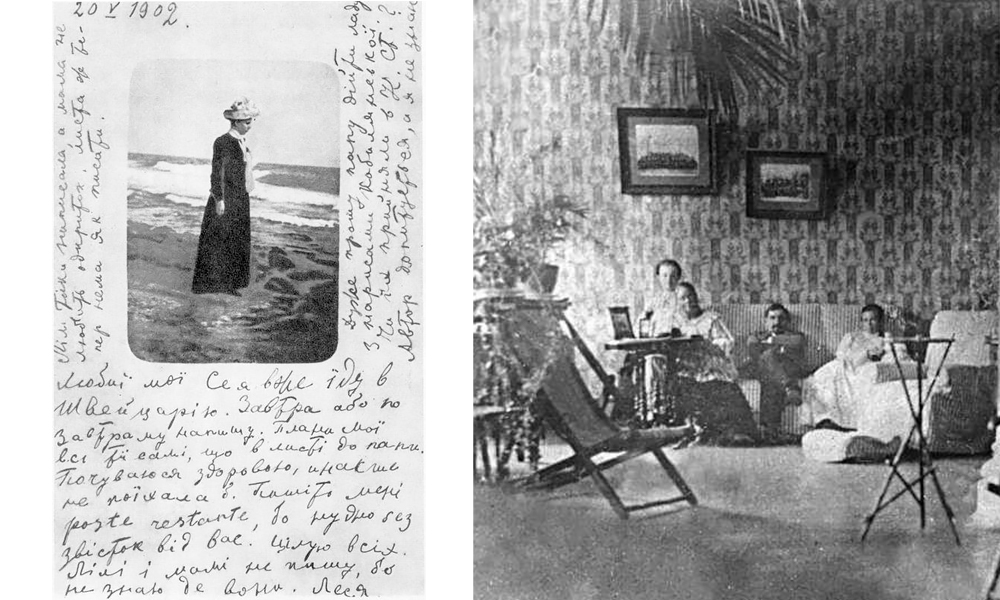 20 V 1902.
Любі мої Се я вже їду в
Швейцарію. Завтра або по
завтраму напишу. Плани мої
всі ті самі, що в листі до папи.
Почуваюся здоровою, инакше
не поїхала б. Пишіть мені
poste restante, бо нудно без
звісток від вас. Цілую всіх.
Лілі і мамі не пишу, бо
не знаю де вони. Леся
написала, а мама не
любить одкриток, листа ж те-
пер нема як писать.
Дуже прошу папу дійти ладу
з нарисами Кобилянської.
Чи їх прийняли в К. Ст.?
Автор допитується, а я не знаю